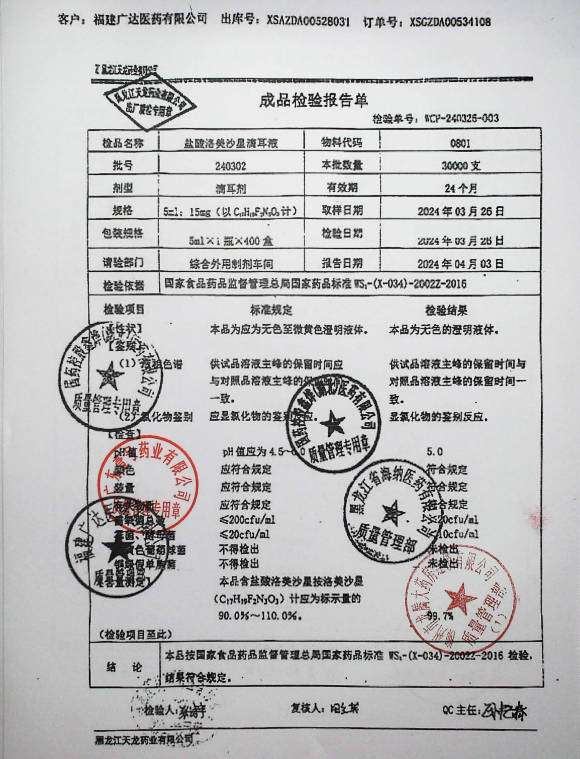 客户：福建广达医药有限公司 出库号：XSAZDA00528031 订单号：XSGZDA00534108
黑龙江天龙药业有限公司
出厂质检专用章
成品检验报告单
检验单号：WCP-240326-003
检品名称 盐酸洛美沙星滴耳液 物料代码 0801
批号 240302 本批数量 30000支
剂型 滴耳剂 有效期 24个月
规格 5ml：15mg（以C₁₇H₁₉F₂N₃O₃计） 取样日期 2024年03月26日
包装规格 5ml×1瓶×400盒 检验日期 2024年03月26日
请验部门 综合外用制剂车间 报告日期 2024年04月03日
检验依据 国家食品药品监督管理总局国家药品标准WS₁-(X-034)-2002Z-2016
检验项目 标准规定 检验结果
【性状】 本品为应为无色至微黄色澄明液体。 本品为无色的澄明液体。
(1) 色谱 供试品溶液主峰的保留时间应 供试品溶液主峰的保留时间与
与对照品溶液主峰的保留时间 对照品溶液主峰的保留时间一
一致。 致。
(2) 氯化物鉴别 应显氯化物的鉴别 应显氯化物的鉴别反应。
【检查】
pH值 pH值应为4.5~ 5.0
颜色 应符合规定 符合规定
装量 应符合规定 符合规定
应符合规定 符合规定
≤200cfu/ml <20cfu/ml
≤20cfu/ml <10cfu/ml
色葡萄球菌 不得检出 未检出
假单胞菌 不得检出 未检出
【含量测定】 本品含盐酸洛美沙星按洛美沙星
(C₁₇H₁₉F₂N₃O₃) 计应为标示量的
90.0%~110.0%。 99.7%
(检验项目至此)
结 论 本品按国家食品药品监督管理总局国家药品标准 WS₁-(X-034)-2002Z-2016 检验，
结果符合规定。
检验人： 复核人： QC主任：
黑龙江天龙药业有限公司
质量管理专用章
质量管理专用章
黑龙江省海纳医药有限公司
质量管理部
药业有限公司
专用章
福建广达医
质量管理部
(1)